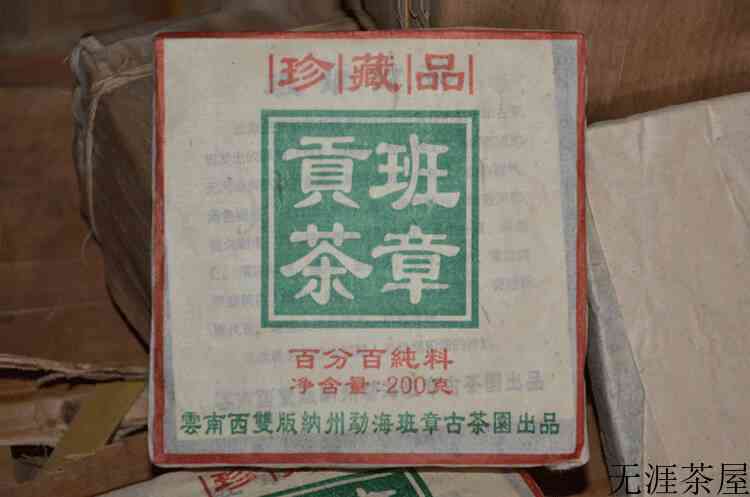 珍藏品
班章
貢茶
百分百純料
净含量:200克
雲南西雙版納州勐海班章古茶園出品
珍
无涯茶屋